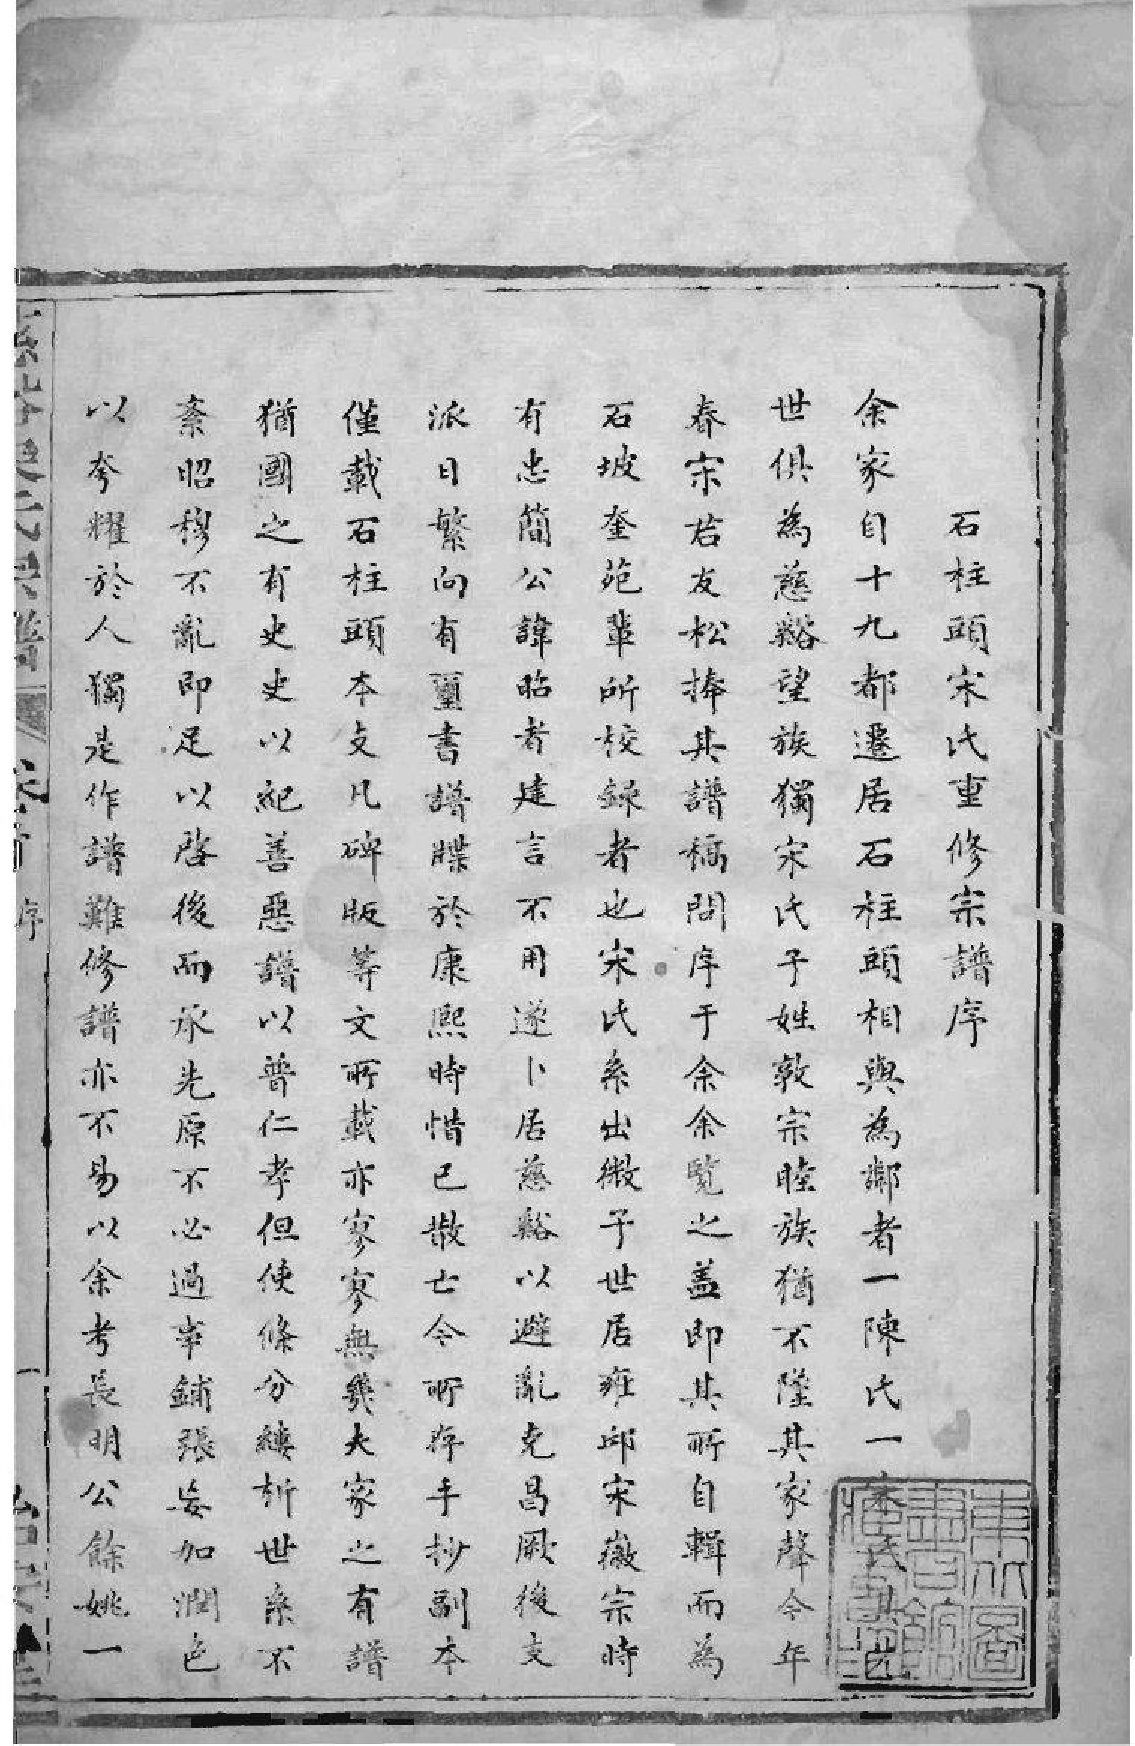 石柱頭宋氏重修宗譜序
余家自十九都遷居石柱頭相與為鄰者一陳氏一宋氏其
世俱為慈谿望族獨宋氏子姓敦宗睦族猶不墜其家聲今年
春宋君友松捧其譜稿問序于余余覽之蓋即其所自輯而為
石坡奎苑輩所校錄者也宋氏系出微子世居雍邱宋徽宗時
有忠簡公諱昭者建言不用遂卜居慈谿以避亂克昌厥後支
派日繁向有璽書譜牒於康熙時惜已散亡今所存手抄副本
僅載石柱頭本支凡碑版等文所載亦寥寥無幾夫家之有譜
猶國之有史史以紀善惡譜以普仁孝但使條分縷析世系不
紊昭穆不亂即足以啓後而承先原不必過事鋪張妄加潤色
以夸耀於人獨是作譜難修譜亦不易以余考長明公餘姚一
序
一